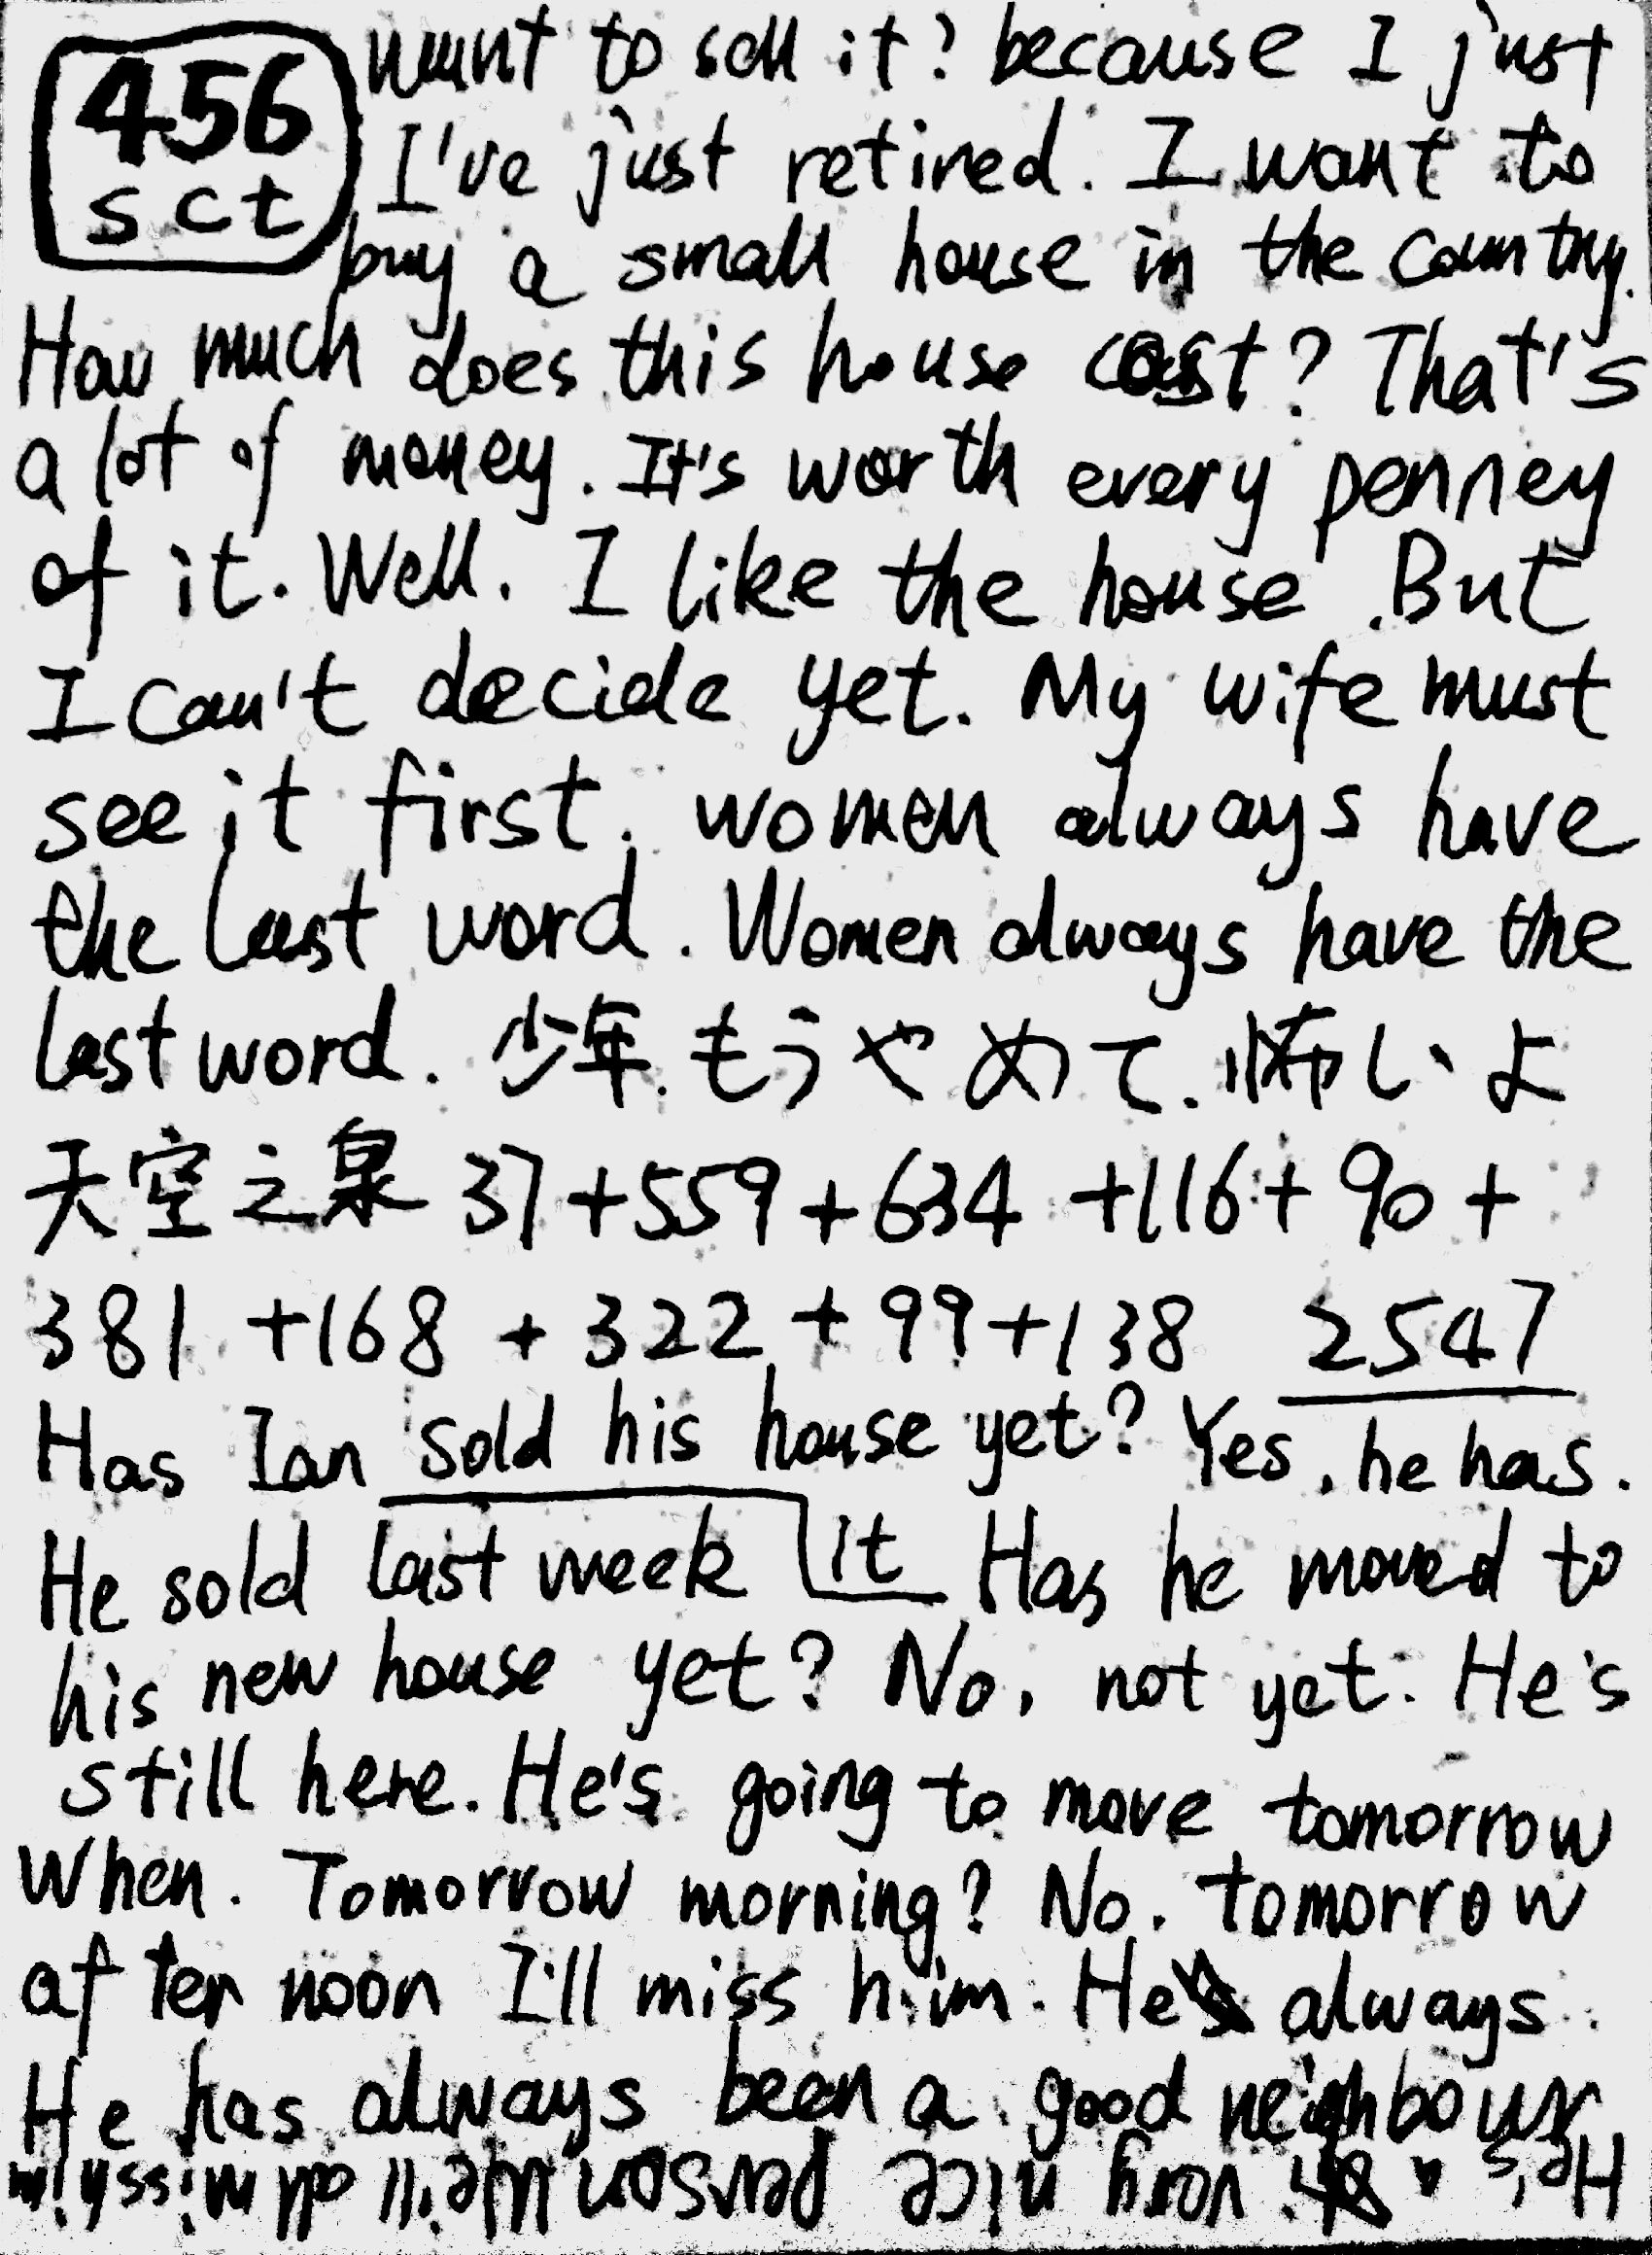 456
sct
want to sell it? because I just
I've just retired. I want to
buy a small house in the country.
How much does this house cost? That's
a lot of money. It's worth every penney
of it. Well. I like the house. But
I can't decide yet. My wife must
see it first. women always have
the last word. Women always have the
last word. 少年.もうやめて.怖いよ
天空之泉 37+559+634+116+90+
381+168+322+99+138 2547
Has Ian sold his house yet? Yes, he has.
He sold last week it Has he moved to
his new house yet? No, not yet. He's
still here. He's going to move tomorrow
When. Tomorrow morning? No. tomorrow
afternoon I'll miss him. He always
He has always been a good neighbour
He's a very nice person We'll all miss him